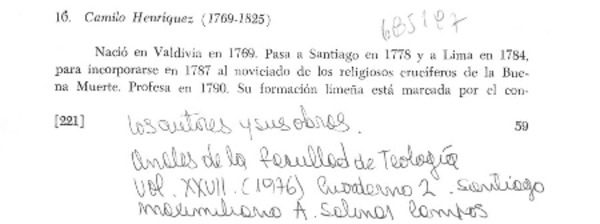 16. Camilo Henríquez (1769-1825)
685127
Nació en Valdivia en 1769. Pasa a Santiago en 1778 y a Lima en 1784,
para incorporarse en 1787 al noviciado de los religiosos crucíferos de la Bue-
na Muerte. Profesa en 1790. Su formación limeña está marcada por el con-
[221] Los autores y sus obras. 59
Anales de la Facultad de Teología
Vol. XXVII. (1976) Cuaderno 2. Santiago
Maximiliano A. Salinas Campos